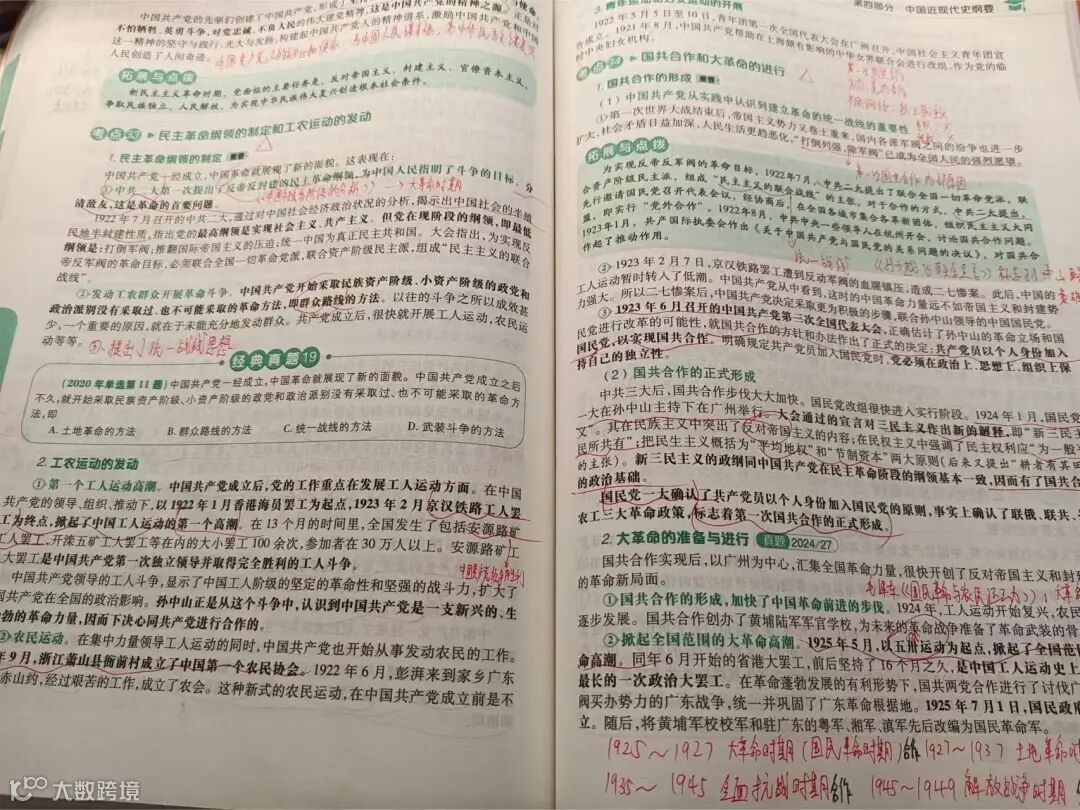 中国共产党的先驱们创建了中国共产党,形成了
不怕牺牲、英勇斗争,对党忠诚、不负人民的伟大建党精神,这是中国共产党的精神之源。
这一精神的坚守与践行、光大与发扬,构建起中国共产党人的精神谱系,激励中国共产党和中国
人民创造了人间奇迹。
拓展与点拨
新民主主义革命时期,党面临的主要任务是,反对帝国主义、封建主义、官僚资本主义,
争取民族独立、人民解放,为实现中华民族伟大复兴创造根本社会条件。
考点33 民主革命纲领的制定和工农运动的发动
1. 民主革命纲领的制定 重要
中国共产党一经成立,中国革命就展现了新的面貌。这表现在:
①中共二大第一次提出了反帝反封建的民主革命纲领,为中国人民指明了斗争的目标。分
清敌友,这是革命的首要问题。
大革命时期
1922年7月召开的中共二大,通过对中国社会经济政治状况的分析,揭示出中国社会的半殖
民地半封建性质,指出党的最高纲领是实现社会主义、共产主义。但党在现阶段的纲领,即最低
纲领是:打倒军阀;推翻国际帝国主义的压迫;统一中国为真正民主共和国。大会指出,为实现反
帝反军阀的革命目标,必须联合全国一切革命党派,联合资产阶级民主派,组成“民主主义的联合
战线”。
②发动工农群众开展革命斗争。中国共产党开始采取民族资产阶级、小资产阶级的政党和
政治派别没有采取过、也不可能采取的革命方法,即群众路线的方法。以往的斗争之所以成效甚
少,一个重要的原因,就在于未能充分地发动群众。共产党成立后,很快就开展工人运动、农民运
动等等。
③.提出了统一战线思想
经典真题19
(2020年单选第11题)中国共产党一经成立,中国革命就展现了新的面貌。中国共产党成立之后
不久,就开始采取民族资产阶级、小资产阶级的政党和政治派别没有采取过、也不可能采取的革命方
法,即
A. 土地革命的方法 B. 群众路线的方法 C. 统一战线的方法 D. 武装斗争的方法
2. 工农运动的发动
①第一个工人运动高潮。中国共产党成立后,党的工作重点在发展工人运动方面。在中国
共产党的领导、组织、推动下,以1922年1月香港海员罢工为起点,1923年2月京汉铁路工人罢
工为终点,掀起了中国工人运动的第一个高潮。在13个月的时间里,全国发生了包括安源路矿
工人罢工、开滦五矿工人大罢工等在内的大小罢工100余次,参加者在30万人以上。安源路矿工
人大罢工是中国共产党第一次独立领导并取得完全胜利的工人斗争。
中国共产党领导的工人斗争,显示了中国工人阶级的坚定的革命性和坚强的战斗力,扩大了
国共产党在全国的政治影响。孙中山正是从这个斗争中,认识到中国共产党是一支新兴的、生
勃的革命力量,因而下决心同共产党进行合作的。
②农民运动。在集中力量领导工人运动的同时,中国共产党也开始从事发动农民的工作。
年9月,浙江萧山县衙前村成立了中国第一个农民协会。1922年6月,彭湃来到家乡广东
赤山约,经过艰苦的工作,成立了农会。这种新式的农民运动,在中国共产党成立前是不
第四部分 中国近现代史纲要
3. 青年运动和妇女运动的开展
1922年5月5日至10日,青年团第一次全国代表大会在广州召开,中国社会主义青年团宣
告成立。1922年8月,中国共产党帮助在上海颇有影响的中华女界联合会进行改组,作为党的临
时中央妇女机构。
考点34 国共合作和大革命的进行
1. 国共合作的形成 重要
(1)中国共产党从实践中认识到建立革命的统一战线的重要性
①第一次世界大战结束后,帝国主义势力又卷土重来,国内各派军阀之间的纷争也进一步
扩大,社会矛盾日益加深,人民生活更趋恶化,“打倒列强,除军阀”已成为全国人民的强烈愿望。
拓展与点拨
为实现反帝反军阀的革命目标,1922年7月,中共二大提出了联合全国一切革命党派,联
合资产阶级民主派,组成“民主主义的联合战线”的主张。对于合作的方式,中共二大提出,
先行邀请国民党召开代表会议,经协商后,在全国各城市集合各革新团体,组织民主主义大同
盟,即实行“党外合作”。1922年8月,中共中央一些领导人在杭州开会,讨论国共合作问题。
1923年1月,共产国际执委会作出《关于中国共产党与国民党的关系问题的决议》,对国共合
作起了推动作用。
统一战线
②1923年2月7日,京汉铁路罢工遭到反动军阀的血腥镇压,造成二七惨案。此后,中国的
工人运动暂时转入了低潮。中国共产党从中看到,这时的中国革命力量远不如帝国主义和封建势
力强大。所以二七惨案后,中国共产党决定采取更为积极的步骤,联合孙中山领导的中国国民党。
③1923年6月召开的中国共产党第三次全国代表大会,正确估计了孙中山的革命立场和国
民党进行改革的可能性,就国共合作的方针和办法作出了正式的决定:共产党员以个人身份加入
国民党,以实现国共合作。明确规定共产党员加入国民党时,党必须在政治上、思想上、组织上保
持自己的独立性。
(2)国共合作的正式形成
中共三大后,国共合作步伐大大加快。国民党改组很快进入实行阶段。1924年1月,国民党
一大在孙中山主持下在广州举行。大会通过的宣言对三民主义作出新的解释,即“新三民主
义”。其在民族主义中突出了反对帝国主义的内容;在民权主义中强调了民主权利应“为一般平
民所共有”;把民生主义概括为“平均地权”和“节制资本”两大原则(后来又提出“耕者有其田”
的主张)。新三民主义的政纲同中国共产党在民主革命阶段的纲领基本一致,因而有了国共合
的政治基础。
国民党一大确认了共产党员以个人身份加入国民党的原则,事实上确认了联俄、联共、
农工三大革命政策,标志着第一次国共合作的正式形成。
2. 大革命的准备与进行 真题 2024/27
国共合作实现后,以广州为中心,汇集全国革命力量,很快开创了反对帝国主义和封
的革命新局面。
①国共合作的形成,加快了中国革命前进的步伐。1924年,工人运动开始复兴,农民
逐步发展。国共合作创办了黄埔陆军军官学校,为未来的革命战争准备了革命武装的骨
②掀起全国范围的大革命高潮。1925年5月,以五卅运动为起点,掀起了全国范
命高潮。同年6月开始的省港大罢工,前后坚持了16个月之久,是中国工人运动史上
最长的一次政治大罢工。在革命蓬勃发展的有利形势下,国共两党合作进行了讨伐广
阀买办势力的广东战争,统一并巩固了广东革命根据地。1925年7月1日,国民政府
立。随后,将黄埔军校校军和驻广东的粤军、湘军、滇军先后改编为国民革命军。
1925~1927 大革命时期(国民革命时期)合作 1927~1937 土地革命
1935~1945 全面抗战时期合作 1945~1949 解放战争时期
大数跨境